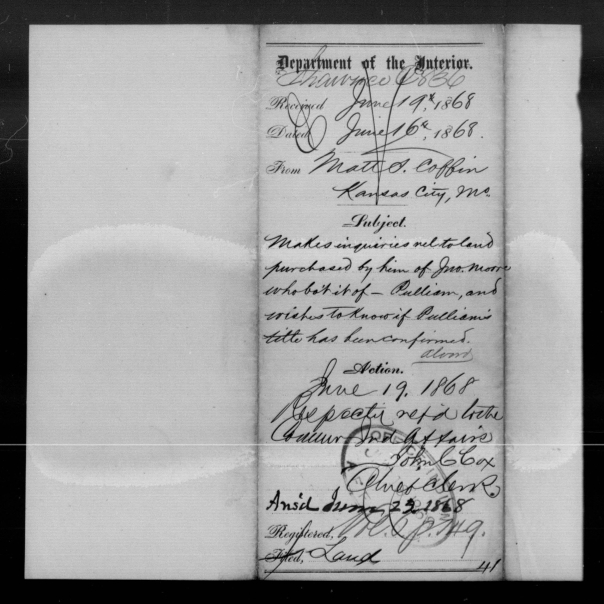 Department of the Interior.
Shawnee C 836
Received June 19th, 1868
Dated June 16th, 1868.
From Matt S. Coffin
Kansas City, Mo.
Subject.
Makes inquiries rel to land
purchased by him of Jno. Moore
who bo't it of — Pulliam, and
wishes to know if Pulliam's
title has been confirmed.
Action.
June 19, 1868
Respectly ref'd to the
Commr Ind Affairs
John C Cox
Chief Clerk
Ans'd June 22 1868
Registered,
Filed, Land
41